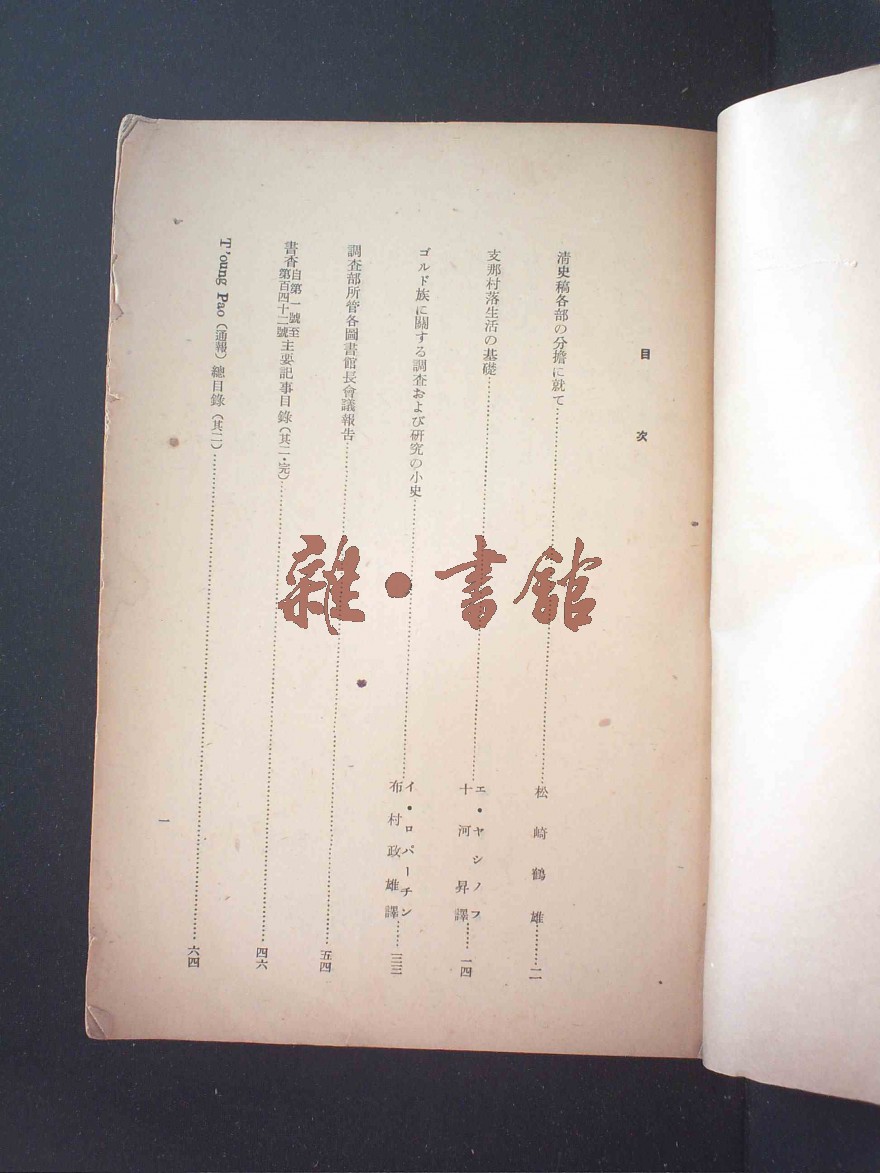 目次
淸史稿各部の分擔に就て……松崎鶴雄……二
支那村落生活の基礎……エ・ヤシノフ
十河昇譯……一四
ゴルド族に關する調査および硏究の小史……イ・ロパーチン
布村政雄譯……三三
調査部所管各圖書館長會議報告……五四
書香自第一號至第百四十二號主要記事目錄(其二・完)……四六
T'oung Pao(通報)總目錄(其二)……六四
一
雜・書館